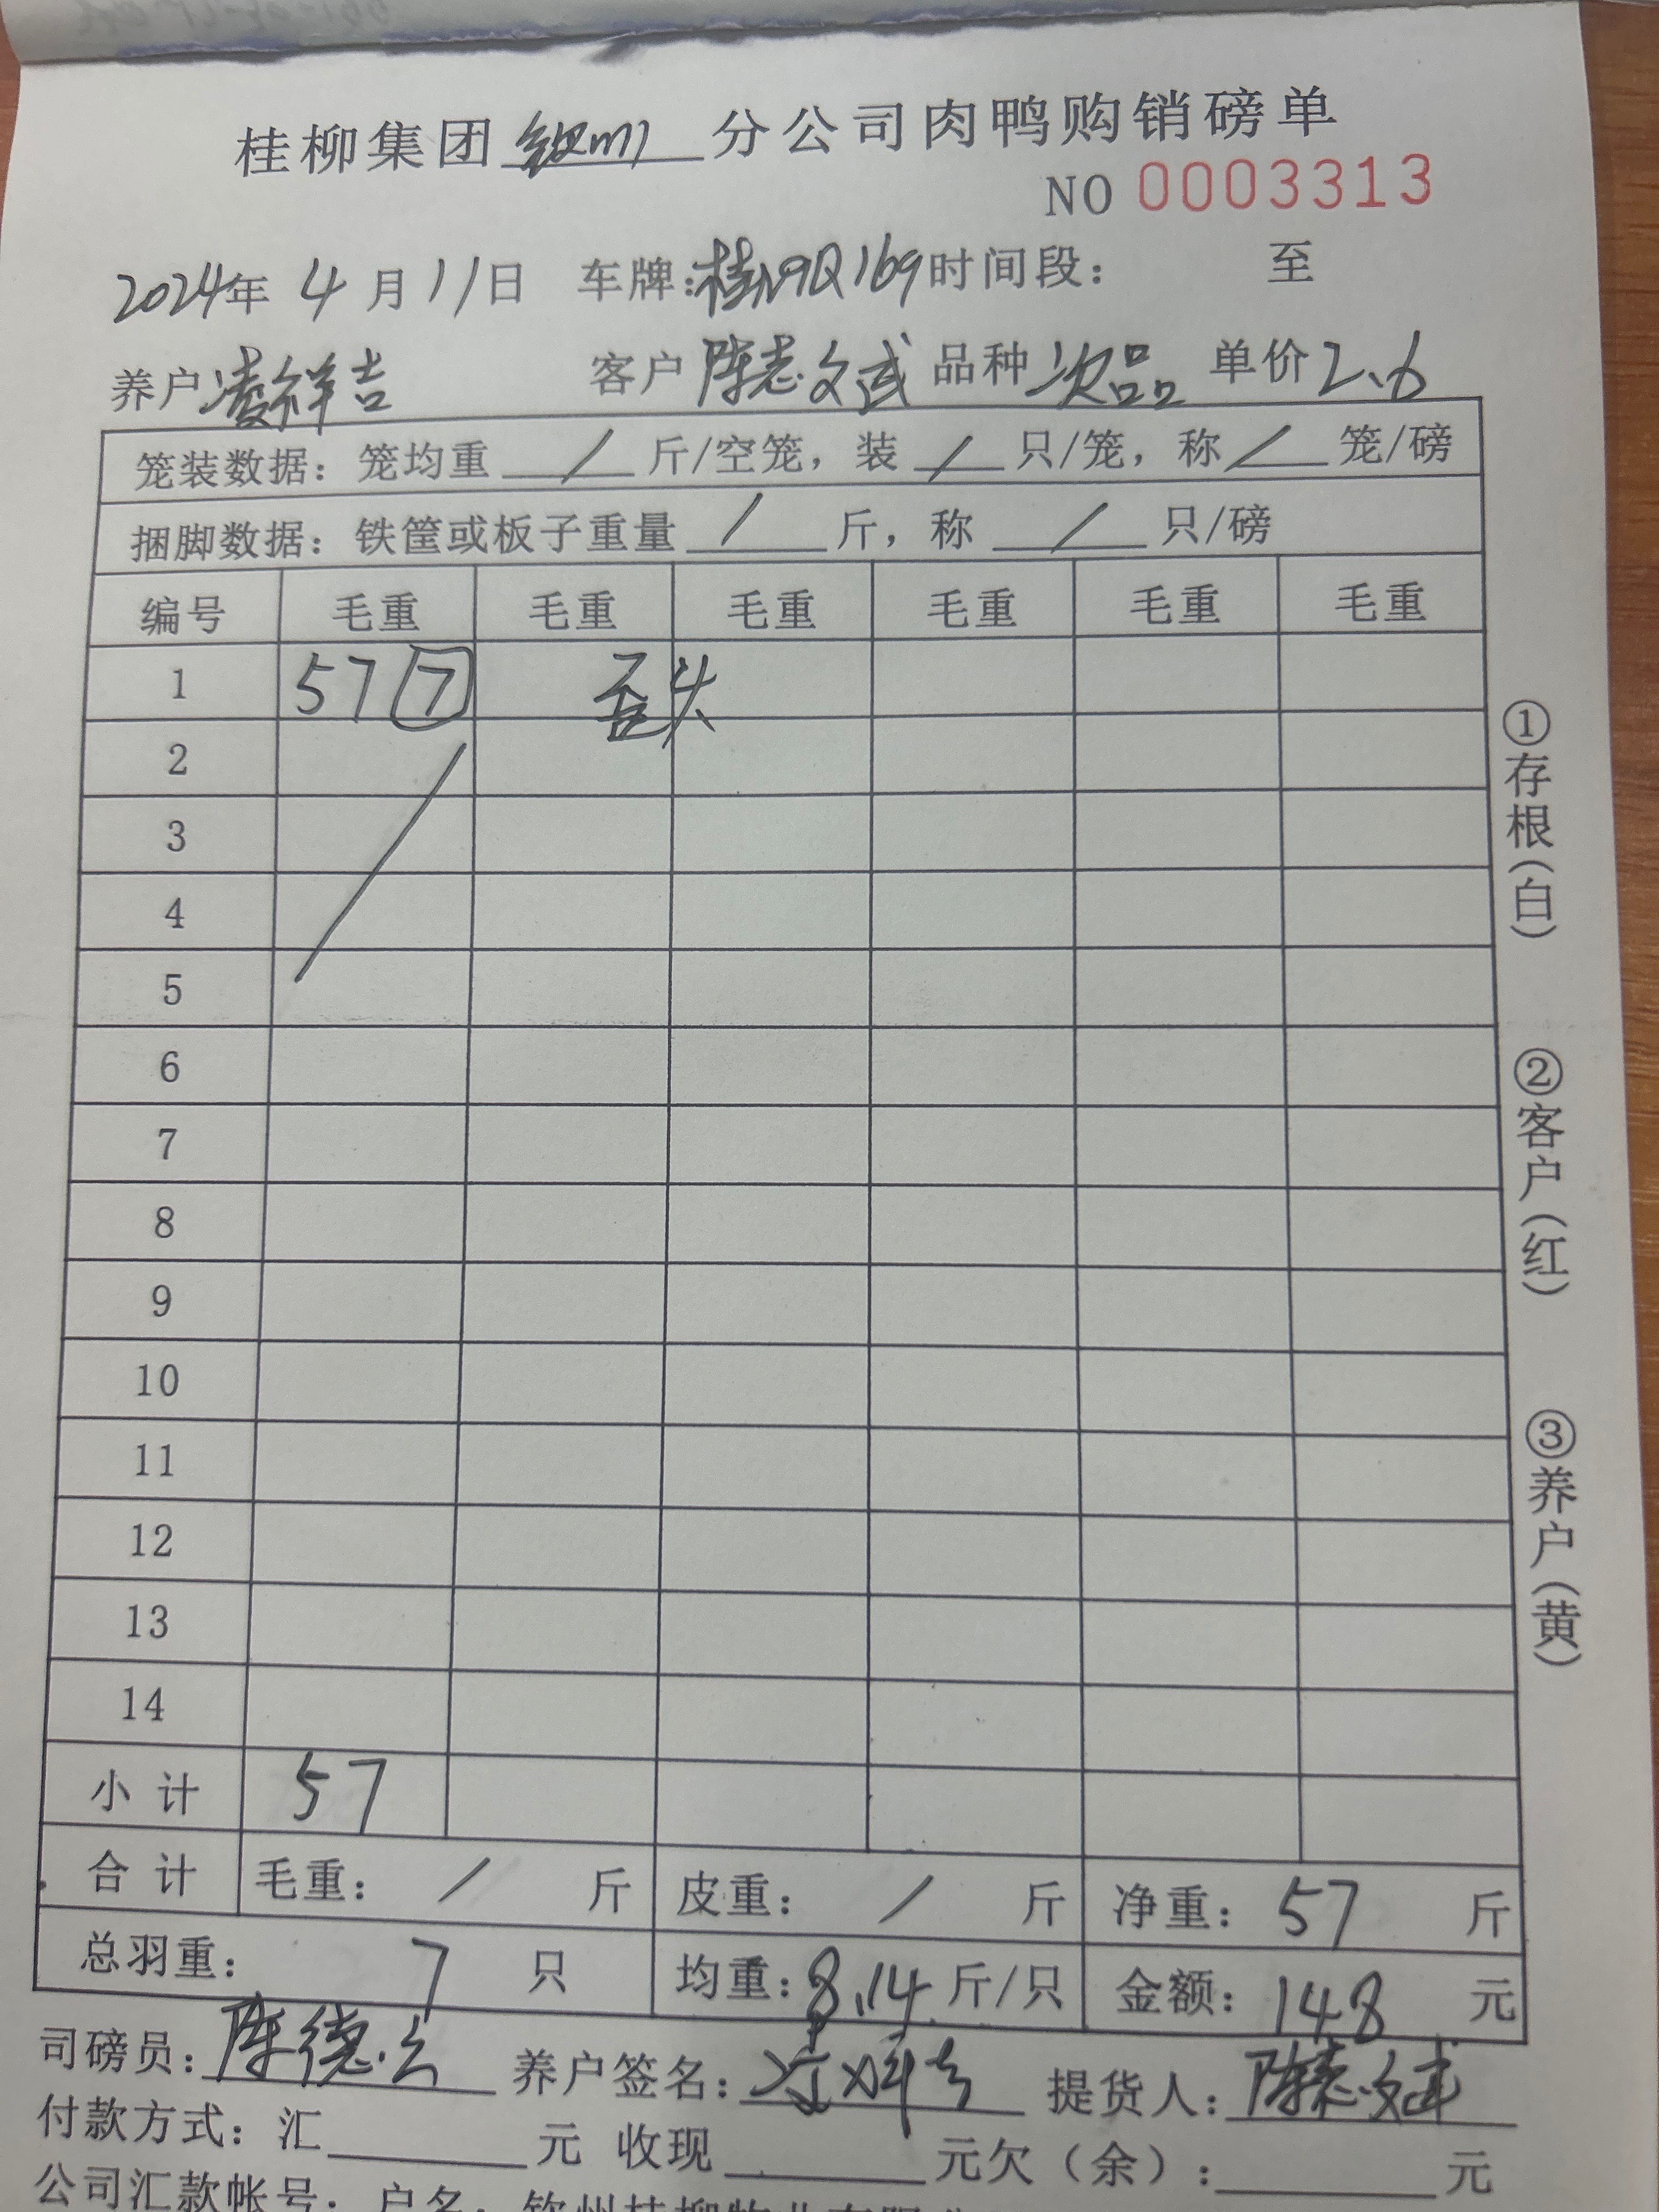 桂柳集团钦州分公司肉鸭购销磅单
NO 0003313
2024年 4月11日 车牌:桂N9Q169时间段: 至
养户凌祥吉 客户陈志文武 品种次品 单价2.6
笼装数据:笼均重 / 斤/空笼,装 / 只/笼,称 / 笼/磅
捆脚数据:铁筐或板子重量 / 斤,称 / 只/磅
编号 毛重 毛重 毛重 毛重 毛重 毛重
1 57 7 歪头
2
3
4
5
6
7
8
9
10
11
12
13
14
小计 57
合计 毛重: / 斤 皮重: / 斤 净重: 57 斤
总羽重: 7 只 均重:8.14斤/只 金额:148 元
司磅员:陈德 养户签名:凌祥吉 提货人:陈志文武
付款方式:汇 元 收现 元欠(余): 元
公司汇款帐号:户名:钦州桂柳牧业有限公
①存根(白)
②客户(红)
③养户(黄)